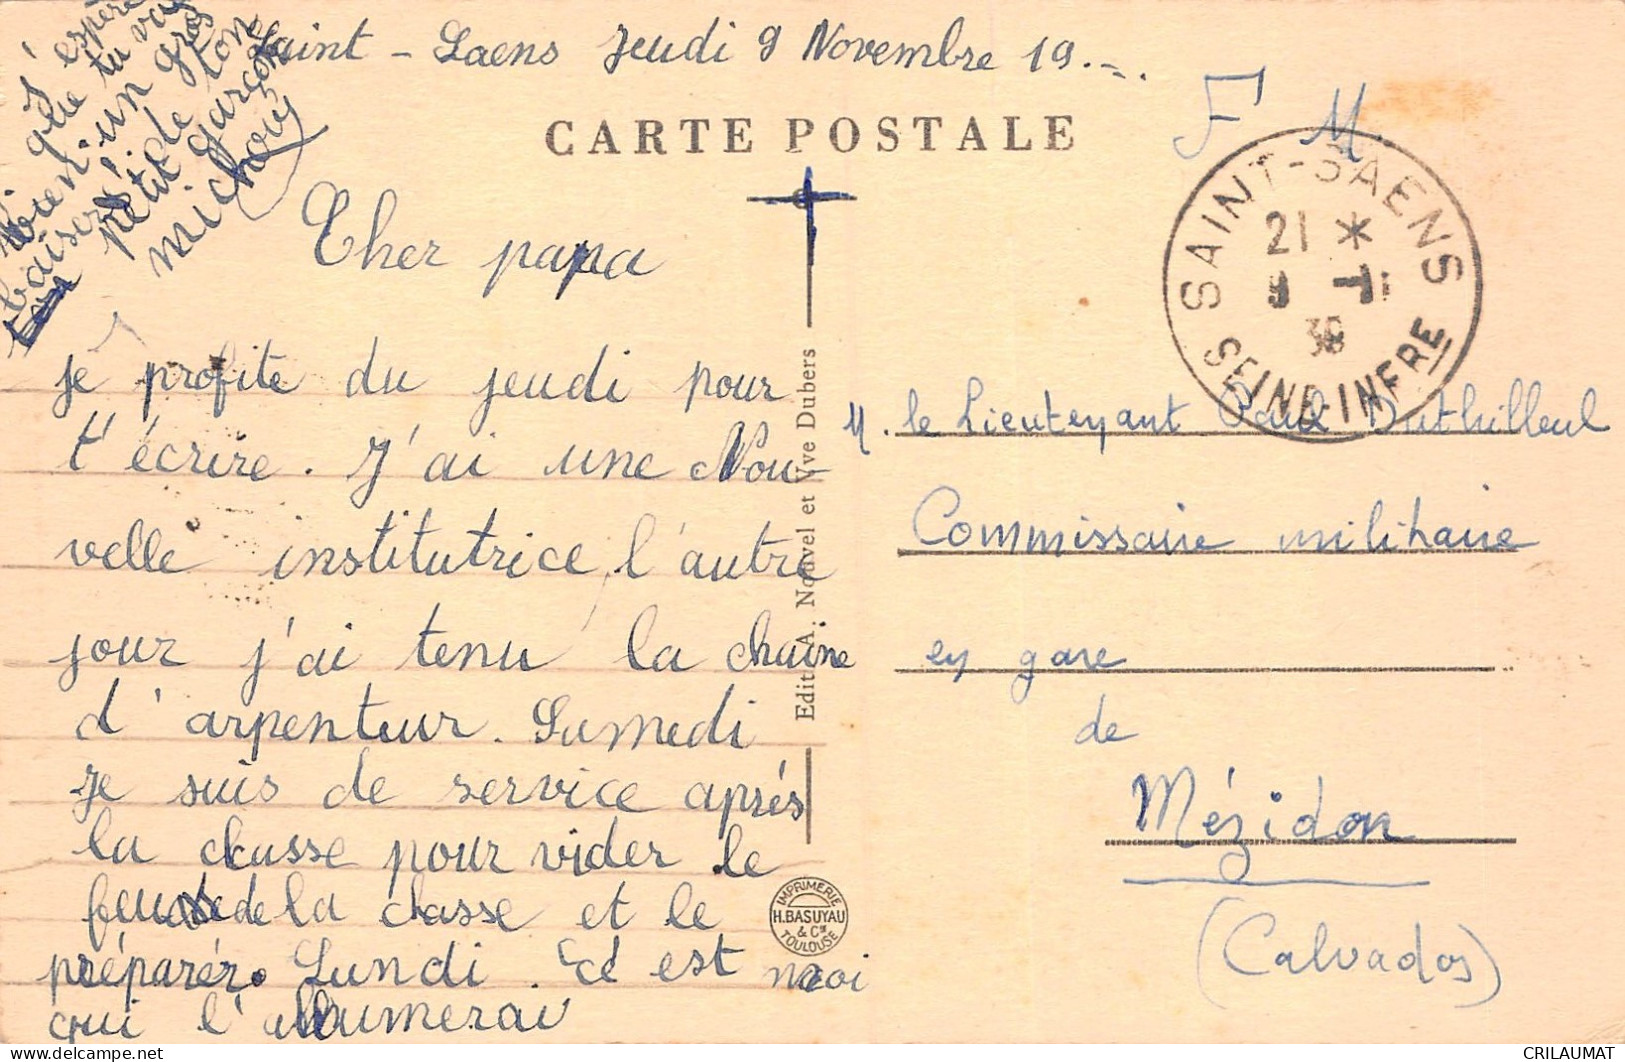 Saint - Saens Jeudi 9 Novembre 19..-.
CARTE POSTALE
F M
SAINT-SAENS
21 *
9 - 11
39
SEINE-INFRE
Cher papa
je profite du jeudi pour
t'écrire. J'ai une Nou-
velle institutrice, l'autre
jour j'ai tenu la chaine
d'arpenteur. Samedi
je suis de service aprés
la classe pour vider le
feu de la classe et le
préparér. Lundi. Cé est moi
qui l'allumerai
j'espère
que tu vas
bien. un gros
baiser de ton
petit garçon
michou
Edit. A. Nouvel et Vve Dubers
IMPRIMERIE
H. BASUYAU
& Cie
TOULOUSE
M. le Lieutenant Paul Duthilleul
Commissaire militaire
en gare
de
Mézidon
(Calvados)
CRILAUMAT